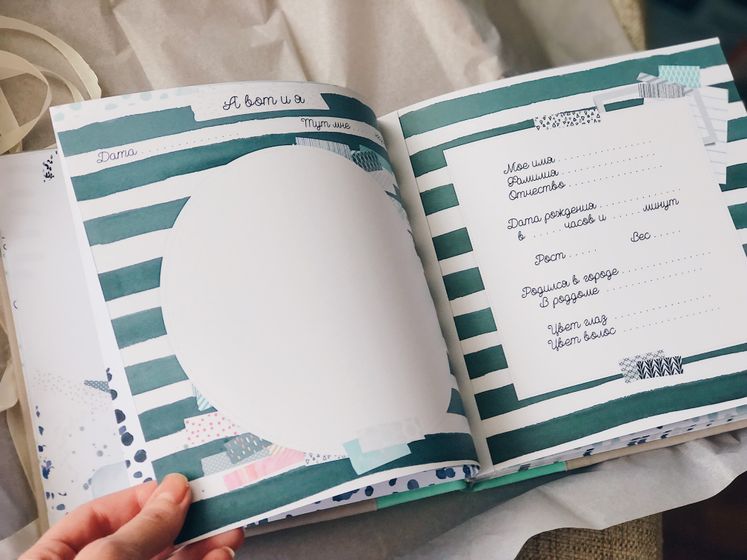 А вот и я
Тут мне
Дата
Мое имя
Фамилия
Отчество
Дата рождения
в ...... часов и ...... минут
Рост ...... Вес ......
Родился в городе
В роддоме
Цвет глаз
Цвет волос